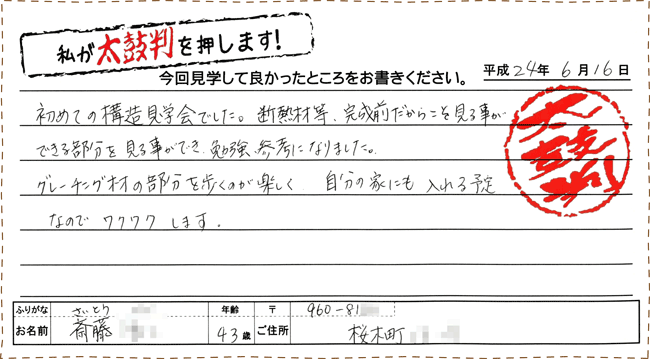 私が太鼓判を押します!
今回見学して良かったところをお書きください。
平成24年 6月16日
初めての構造見学会でした。断熱材等、完成前だからこそ見る事が
できる部分を見る事ができ、勉強、参考になりました。
グレーチング材の部分を歩くのが楽しく 自分の家にも 入れる予定
なので ワクワク します。
太鼓判
ふりがな さいとう 年齢 〒 960-81
お名前 斎藤 43歳 ご住所 桜木町